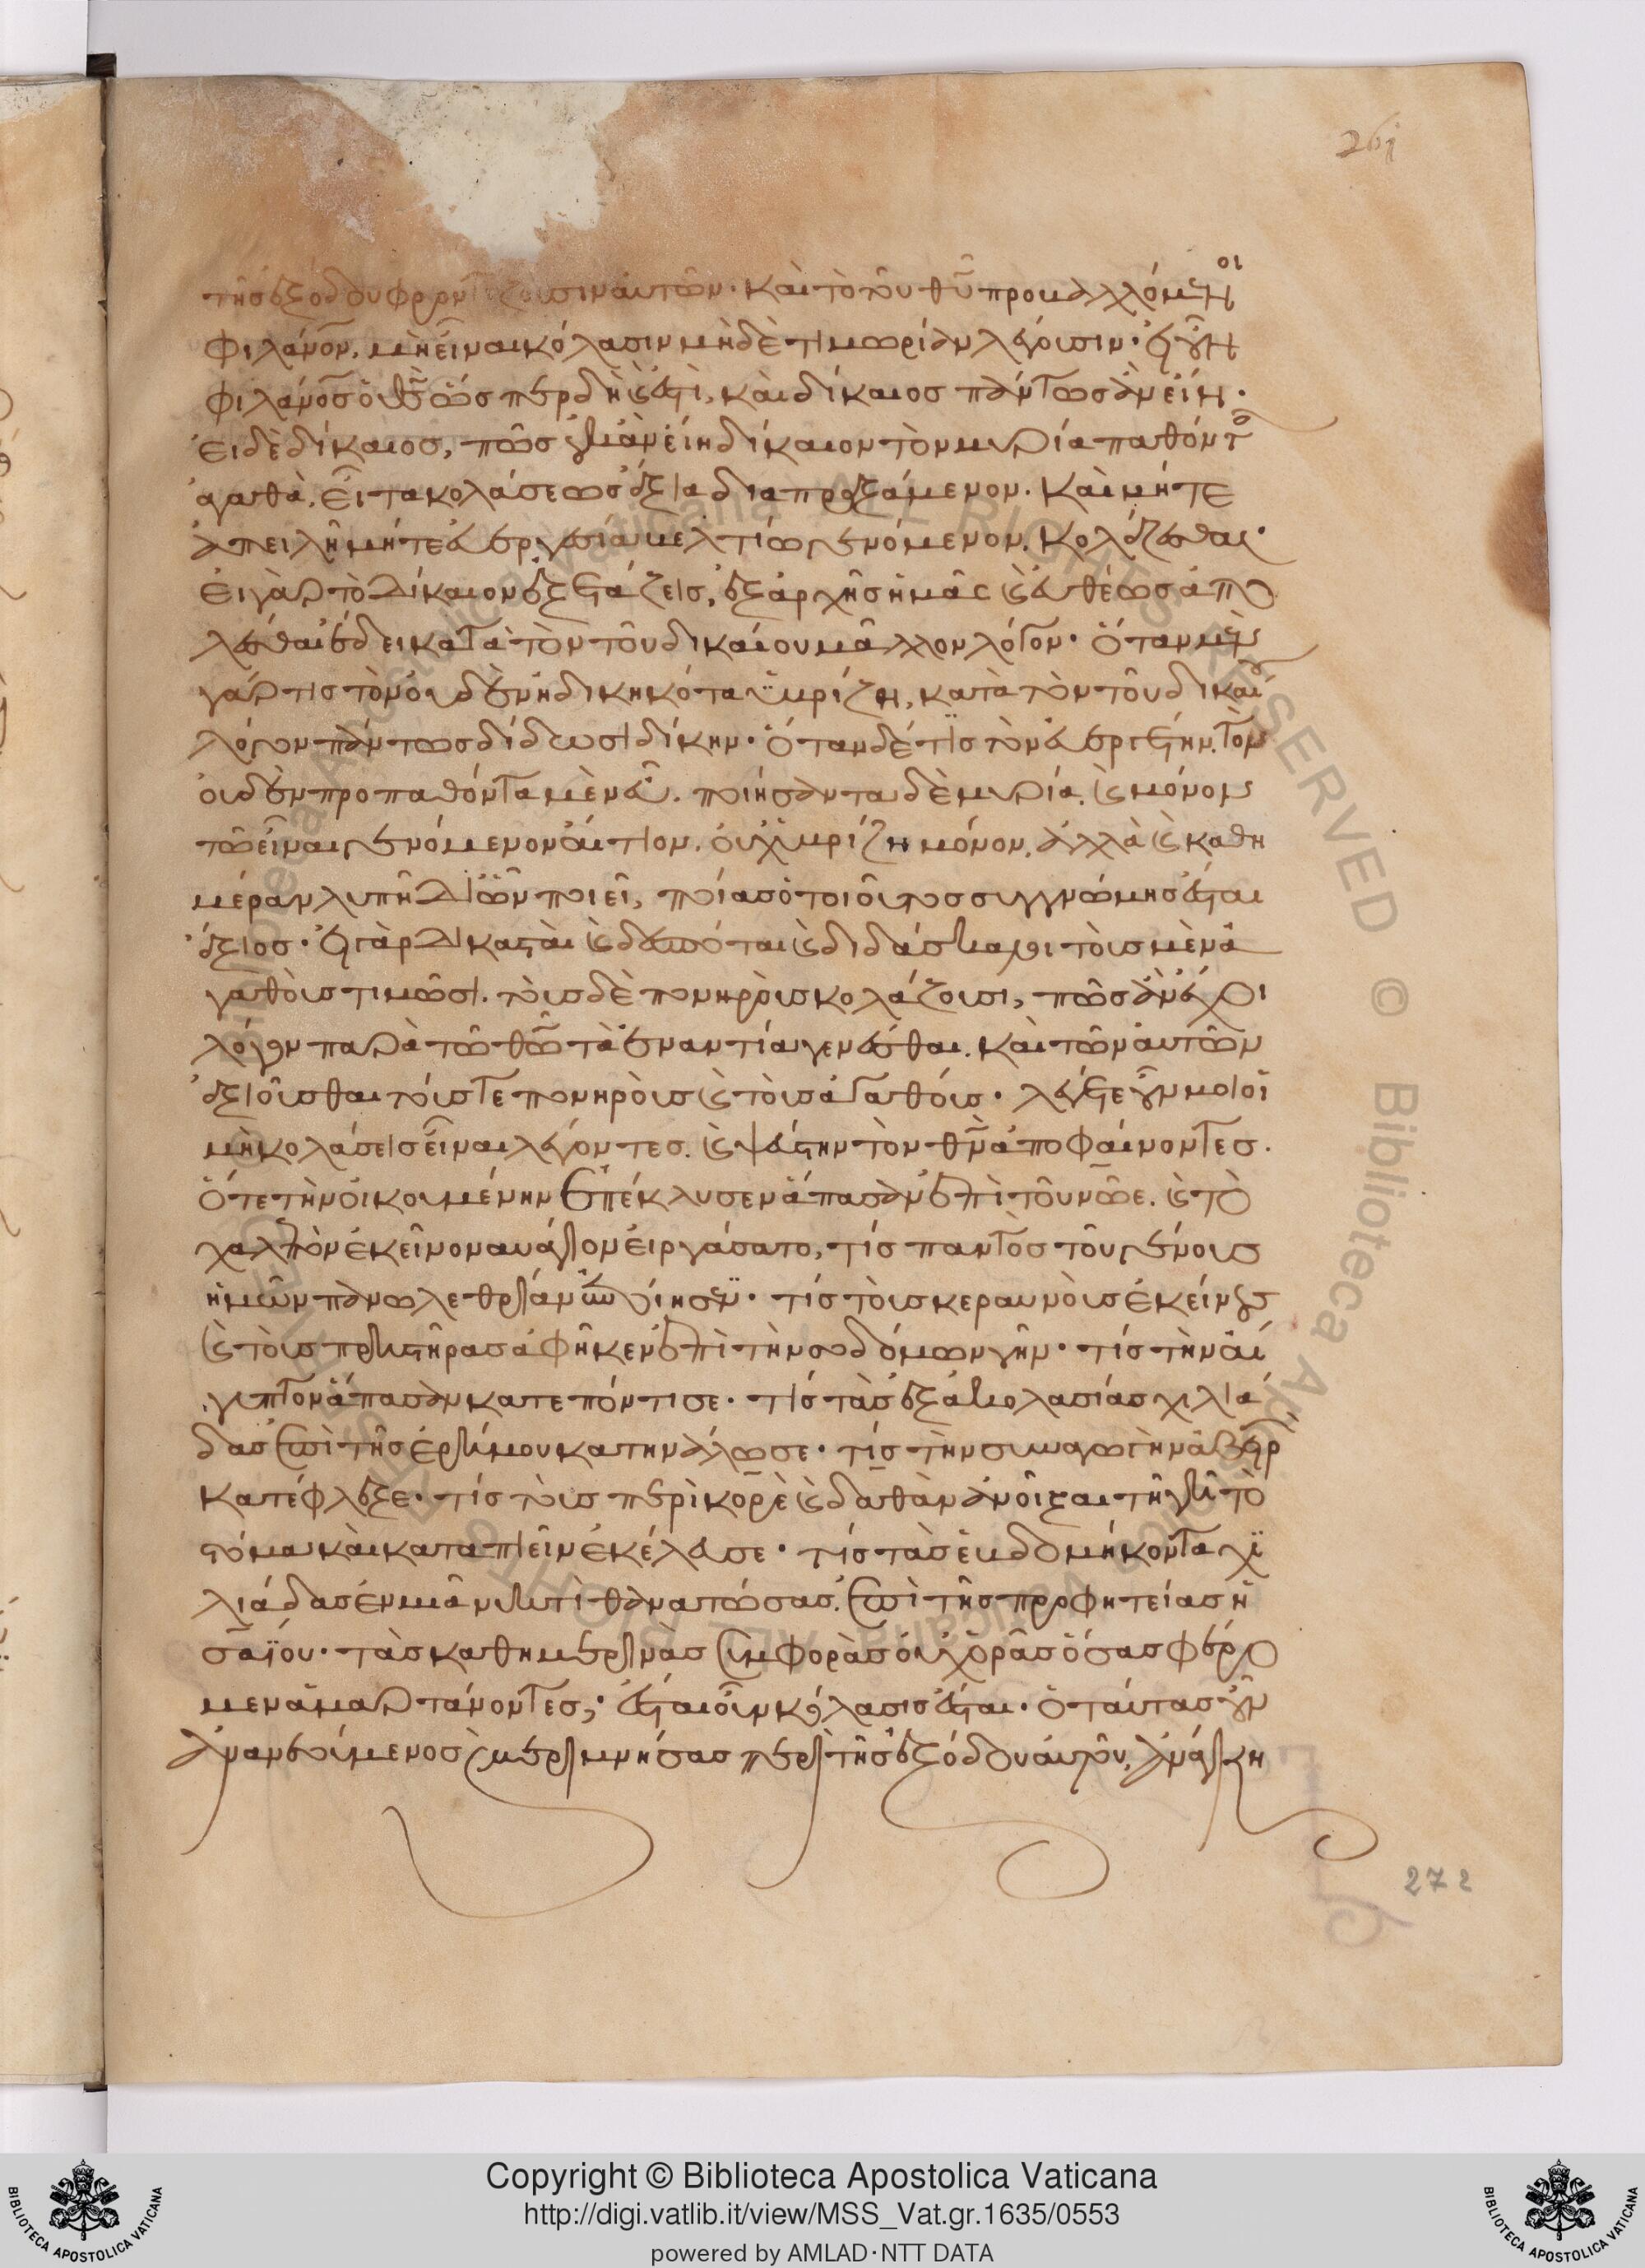 261
τῆς ἐξόδου φροντίζουσιν αὐτῶν· καὶ τὸ τοῦ θυ προβαλλόμενοι
φιλάνον, μὴ εἶναι κόλασιν μηδὲ τιμωρίαν λέγουσιν· ἔστι γὰρ
φιλάνος ὁ θς ὥσπερ δὴ ἐστὶ, καὶ δίκαιος πάντως ἂν εἴη·
εἰ δὲ δίκαιος, πῶς ἂν εἴη δίκαιον τὸν μυρία παθόντα
ἀγαθὰ, εἶτα κολάσεως ἄξια διαπραξάμενον. καὶ μήτε
ἀπειλῆ μήτε εὐεργεσία βελτίω γενόμενον, κολάζεσθαι·
εἰ γὰρ τὸ δίκαιον ἐξετάζεις, ἐξ ἀρχῆς ἡμᾶς καὶ εὐθέως ἀπο
λέσθαι ἔδει κατὰ τὸν τοῦ δικαίου μᾶλλον λόγον· ὅταν μὲν
γάρ τις τὸν οὐδὲν ἠδικηκότα ὑβρίζη, κατὰ τὸν τοῦ δικαίου
λόγον πάντως δίδωσι δίκην· ὅταν δέ τις τὸν εὐεργέτην, τὸν
οὐδὲν προπαθόντα μὲν εὖ, ποιήσαντα δὲ μυρία, καὶ μόνον
τῶ εἶναι γενόμενον αἴτιον, οὐχ ὑβρίζη μόνον, ἀλλὰ καὶ καθη
μέραν λυπῆ δι ὧν ποιεῖ, ποίας ὁ τοιοῦτος συγγνώμης ἔσται
ἄξιος· εἰ γὰρ δικασταὶ καὶ δεσπόται καὶ διδάσκαλοι τοὺς μὲν ἀ
γαθοὺς τιμῶσι, τοὺς δὲ πονηροὺς κολάζουσι, πῶς ἂν ἔχοι
λόγον παρὰ τῶ θῶ τὰ ἐναντία γενέσθαι, καὶ τῶν αὐτῶν
ἀξιοῦσθαι τούς τε πονηροὺς καὶ τοὺς ἀγαθούς· λέγετε οὖν μοι οἱ
μὴ κολάσεις εἶναι λέγοντες, καὶ ψεύστην τὸν θν ἀποφαίνοντες.
ὅτε τὴν οἰκουμένην ἐπέκλυσεν ἅπασαν ἐπὶ τοῦ νῶε, καὶ τὸ
χαλεπὸν ἐκεῖνο ναυάγιον εἰργάσατο, τίς παντὸς τοῦ γένους
ἡμῶν πανωλεθρίαν ἐποίησεν· τίς τοὺς κεραυνοὺς ἐκείνους
καὶ τοὺς πρηστῆρας ἀφῆκεν ἐπὶ τὴν σοδόμων γῆν· τίς τὴν αἴ
γυπτον ἅπασαν κατεπόντισε· τίς τὰς ἑξακοσίας χιλιά
δας ἐπὶ τῆς ἐρήμου κατηνάλωσε· τίς τὴν συναγωγὴν ἀβειρὼν
κατέφλεξε· τίς τοὺς περὶ κορὲ καὶ δαθὰν ἀνοῖξαι τῆ γῆ τὸ
στόμα καὶ καταπιεῖν ἐκέλευσε· τίς τὰς ἑβδομήκοντα χι
λιάδας ἐν μιᾶ νυκτὶ θανατώσας ἐπὶ τῆς προφητείας ἡ
σαΐου· τὰς καθημερινὰς συμφορὰς οὐχ ὁρᾶς ὅσας φέρο
μεν ἁμαρτάνοντες; ἔσται οὖν κόλασις ἔσται· ὁ ταύτας οὖν
ἀνανεούμενος μεριμνήσας περὶ τῆς ἐξόδου αὐτοῦ, ἀνάγκη
272
Copyright © Biblioteca Apostolica Vaticana
http://digi.vatlib.it/view/MSS_Vat.gr.1635/0553
powered by AMLAD·NTT DATA